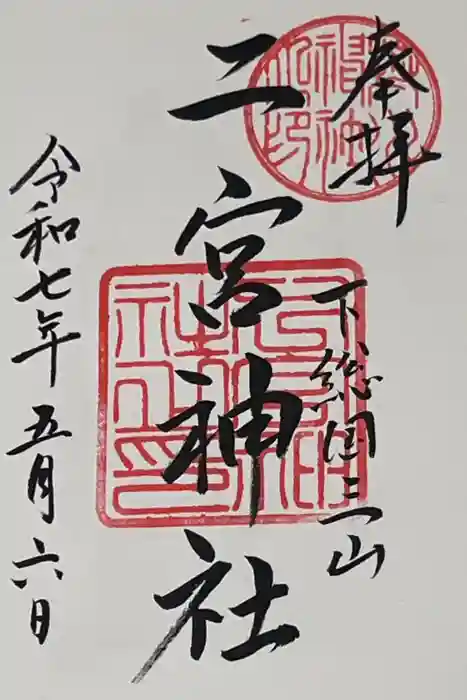 奉拝
下総国三山
二宮神社
令和七年五月六日